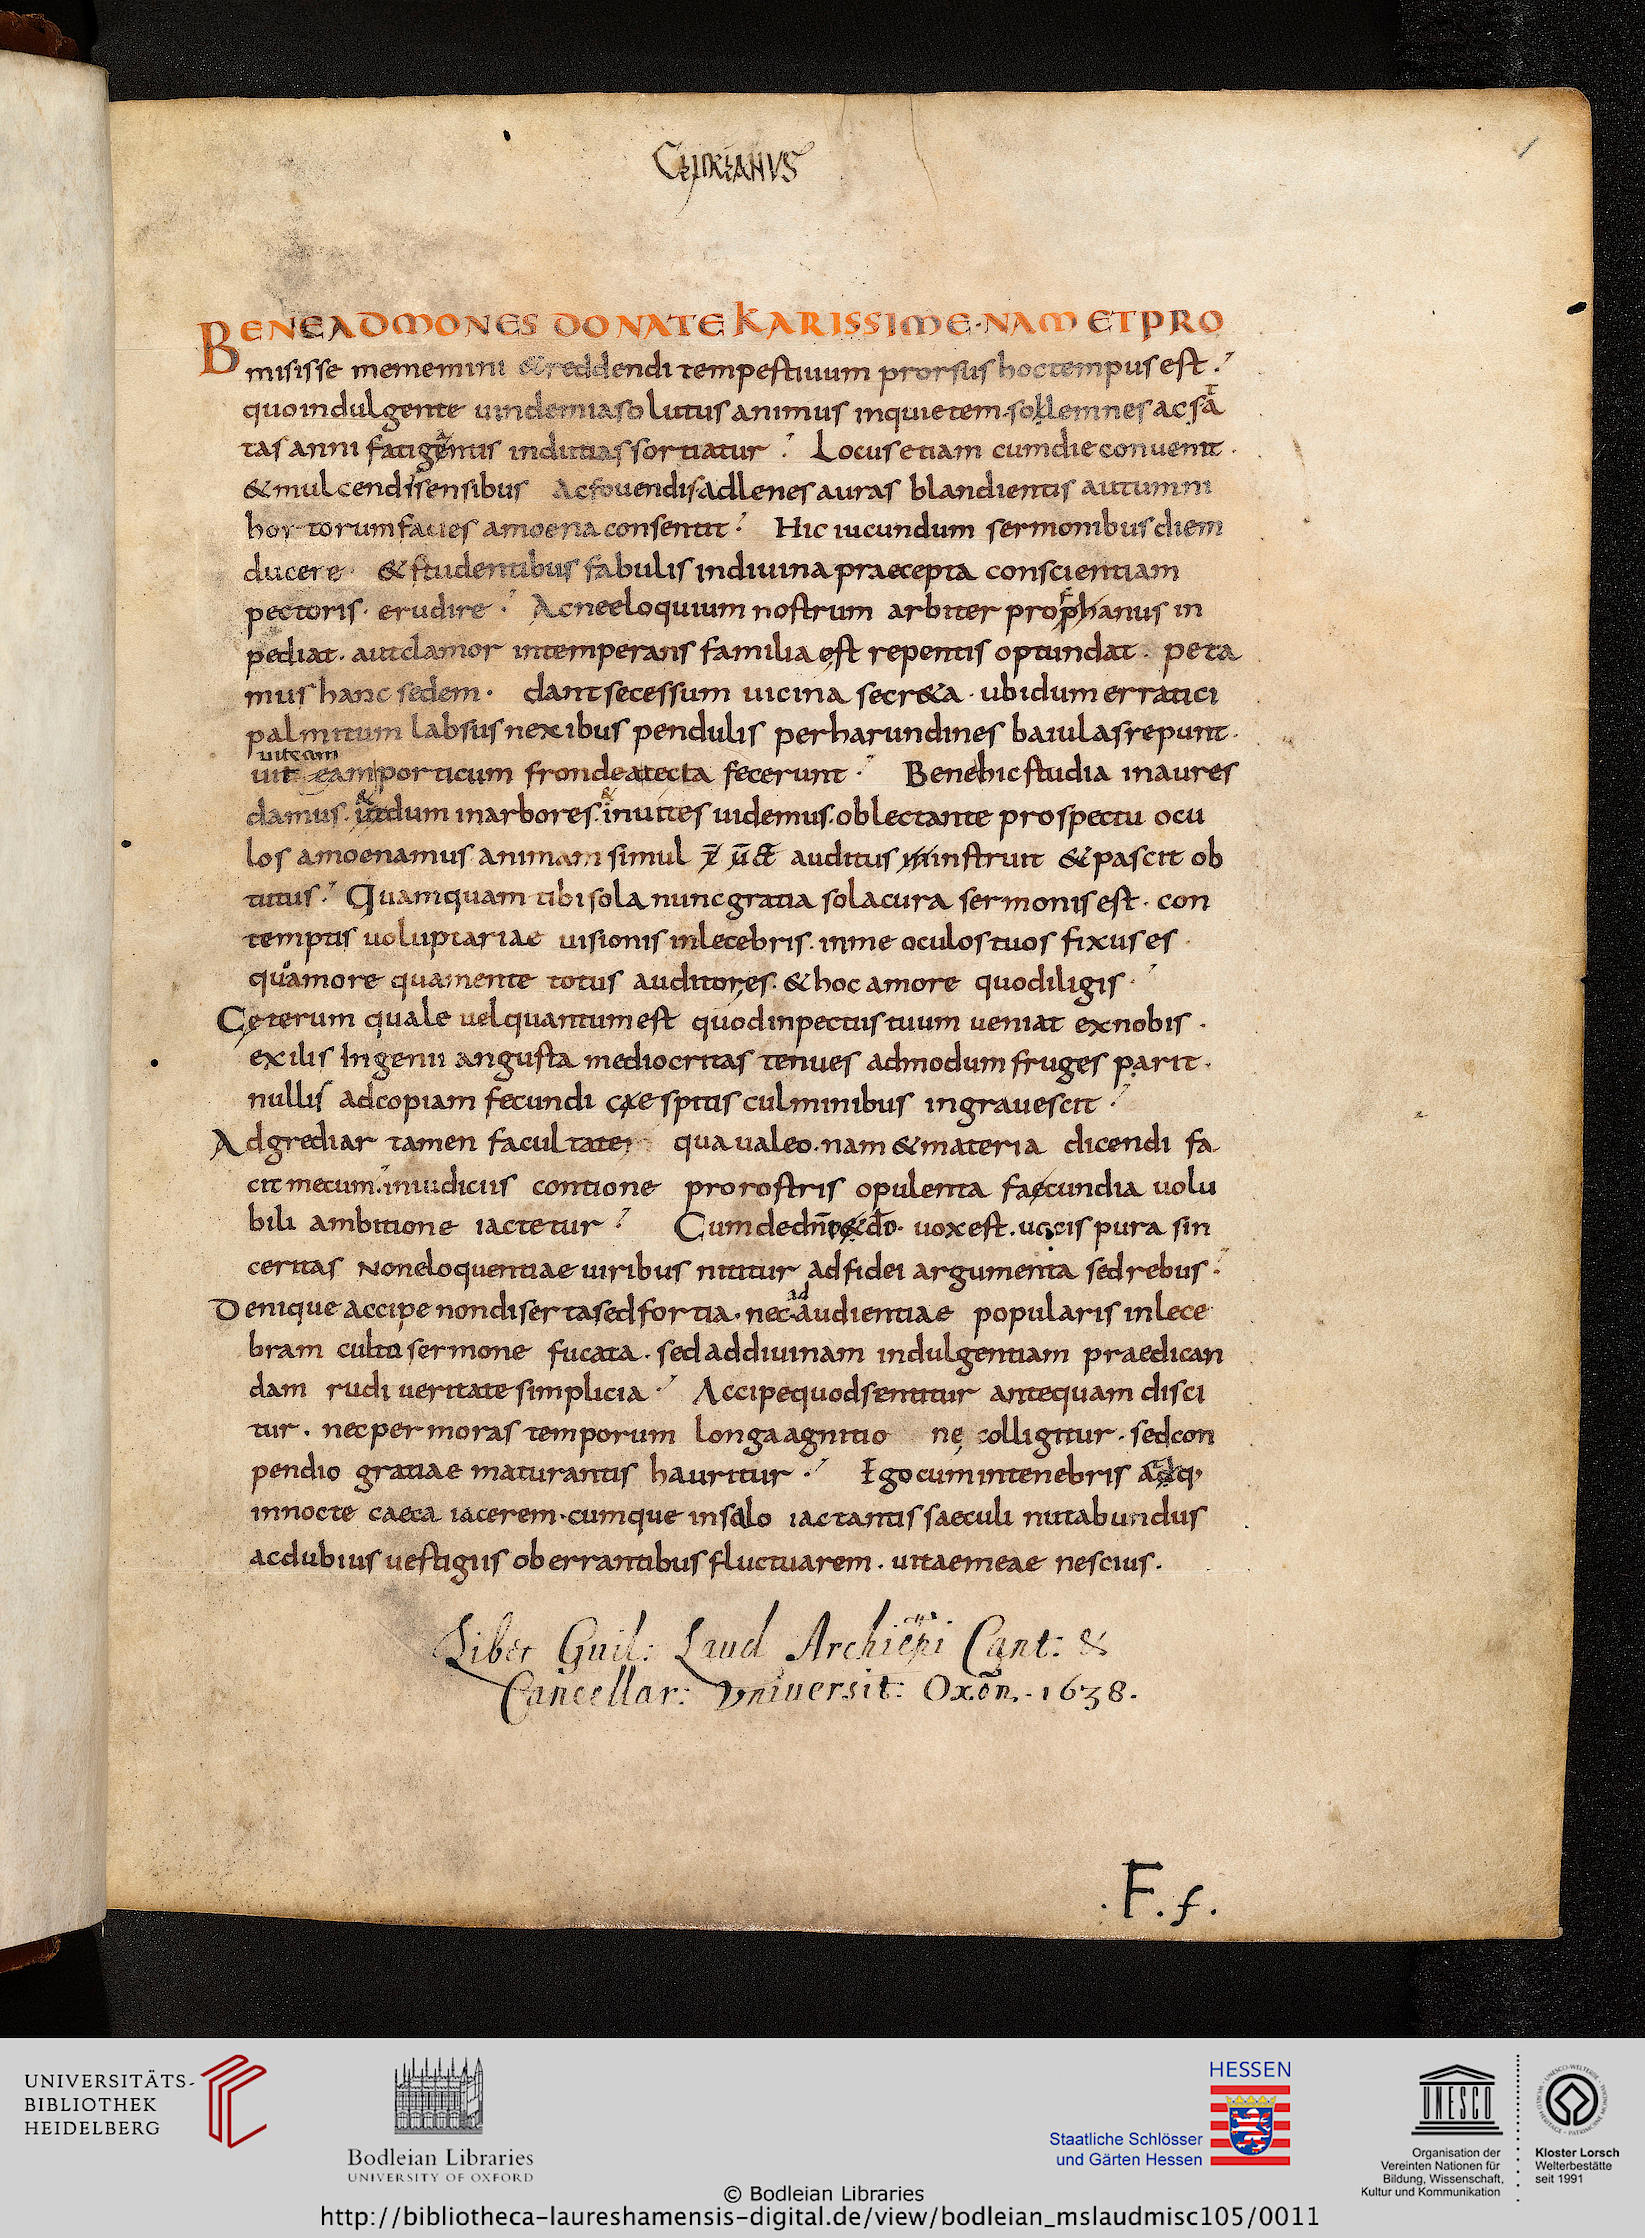 CIPRIANVS
BENE ADMONES DONATE KARISSIME·NAM ET PRO
misisse mememini & reddendi tempestiuum prorsus hoc tempus est.
quo indulgente uindemia solutus animus in quietem sollemnes ac sta
tas anni fatigantis inditias sortiatur Locus etiam cum die conuenit.
& mulcendis sensibus ac fouendis ad lenes auras blandientis autumni
hortorum facies amoena consentit Hic iucundum sermonibus diem
ducere & studentibus fabulis in diuina praecepta conscientiam
pectoris. erudire. Ac ne eloquium nostrum arbiter prophanus in
pediat. aut clamor intemperans familiae strepentis optundat. peta
mus hanc sedem. dant secessum uicina secr&a. ubi dum erratici
palmitum labsus nexibus pendulis per harundines baiulas repunt.
uiteam
uit eam porticum frondea tecta fecerunt. Bene hic studia in aures
damus. & dum in arbores & in uites uidemus. oblectante prospectu ocu
los amoenamus animam simul auditus instruit & pascit ob
tutus. Quamquam tibi sola nunc gratia sola cura sermonis est. con
temptis uoluptariae uisionis inlecebris. in me oculos tuos fixus es.
qua more qua mente totus auditor es. & hoc amore quo diligis.
Ceterum quale uel quantum est quod in pectus tuum ueniat ex nobis.
exilis ingenii angusta mediocritas tenues admodum fruges parit.
nullis ad copiam fecundi caespitis culminibus ingrauescit.
Adgrediar tamen facultate qua ualeo. nam & materia dicendi fa
cit mecum. in iudiciis contione pro rostris opulenta faecundia uolu
bili ambitione iactetur Cum de dño & dõ. uox est. uocis pura sin
ceritas Non eloquentiae uiribus nititur ad fidei argumenta sed rebus.
Denique accipe non diserta sed fortia. nec ad audientiae popularis inlece
bram culto sermone fucata. sed ad diuinam indulgentiam praedican
dam rudi ueritate simplicia. Accipe quod sentitur antequam disci
tur. nec per moras temporum longa agnitione colligitur. sed con
pendio gratiae maturantis hauritur. Ego cum in tenebris adq,
in nocte caeca iacerem. cumque in salo iactantis saeculi nutabundus
ac dubius uestigiis oberrantibus fluctuarem. uitae meae nescius.
Liber Guil: Laud Archiepi Cant: &
Cancellar: Vniuersit: Oxon. 1638.
.F.f.
UNIVERSITÄTS-
BIBLIOTHEK
HEIDELBERG
Bodleian Libraries
UNIVERSITY OF OXFORD
HESSEN
Staatliche Schlösser
und Gärten Hessen
UNESCO
Organisation der
Vereinten Nationen für
Bildung, Wissenschaft,
Kultur und Kommunikation
Kloster Lorsch
Welterbestätte
seit 1991
© Bodleian Libraries
http://bibliotheca-laureshamensis-digital.de/view/bodleian_mslaudmisc105/0011